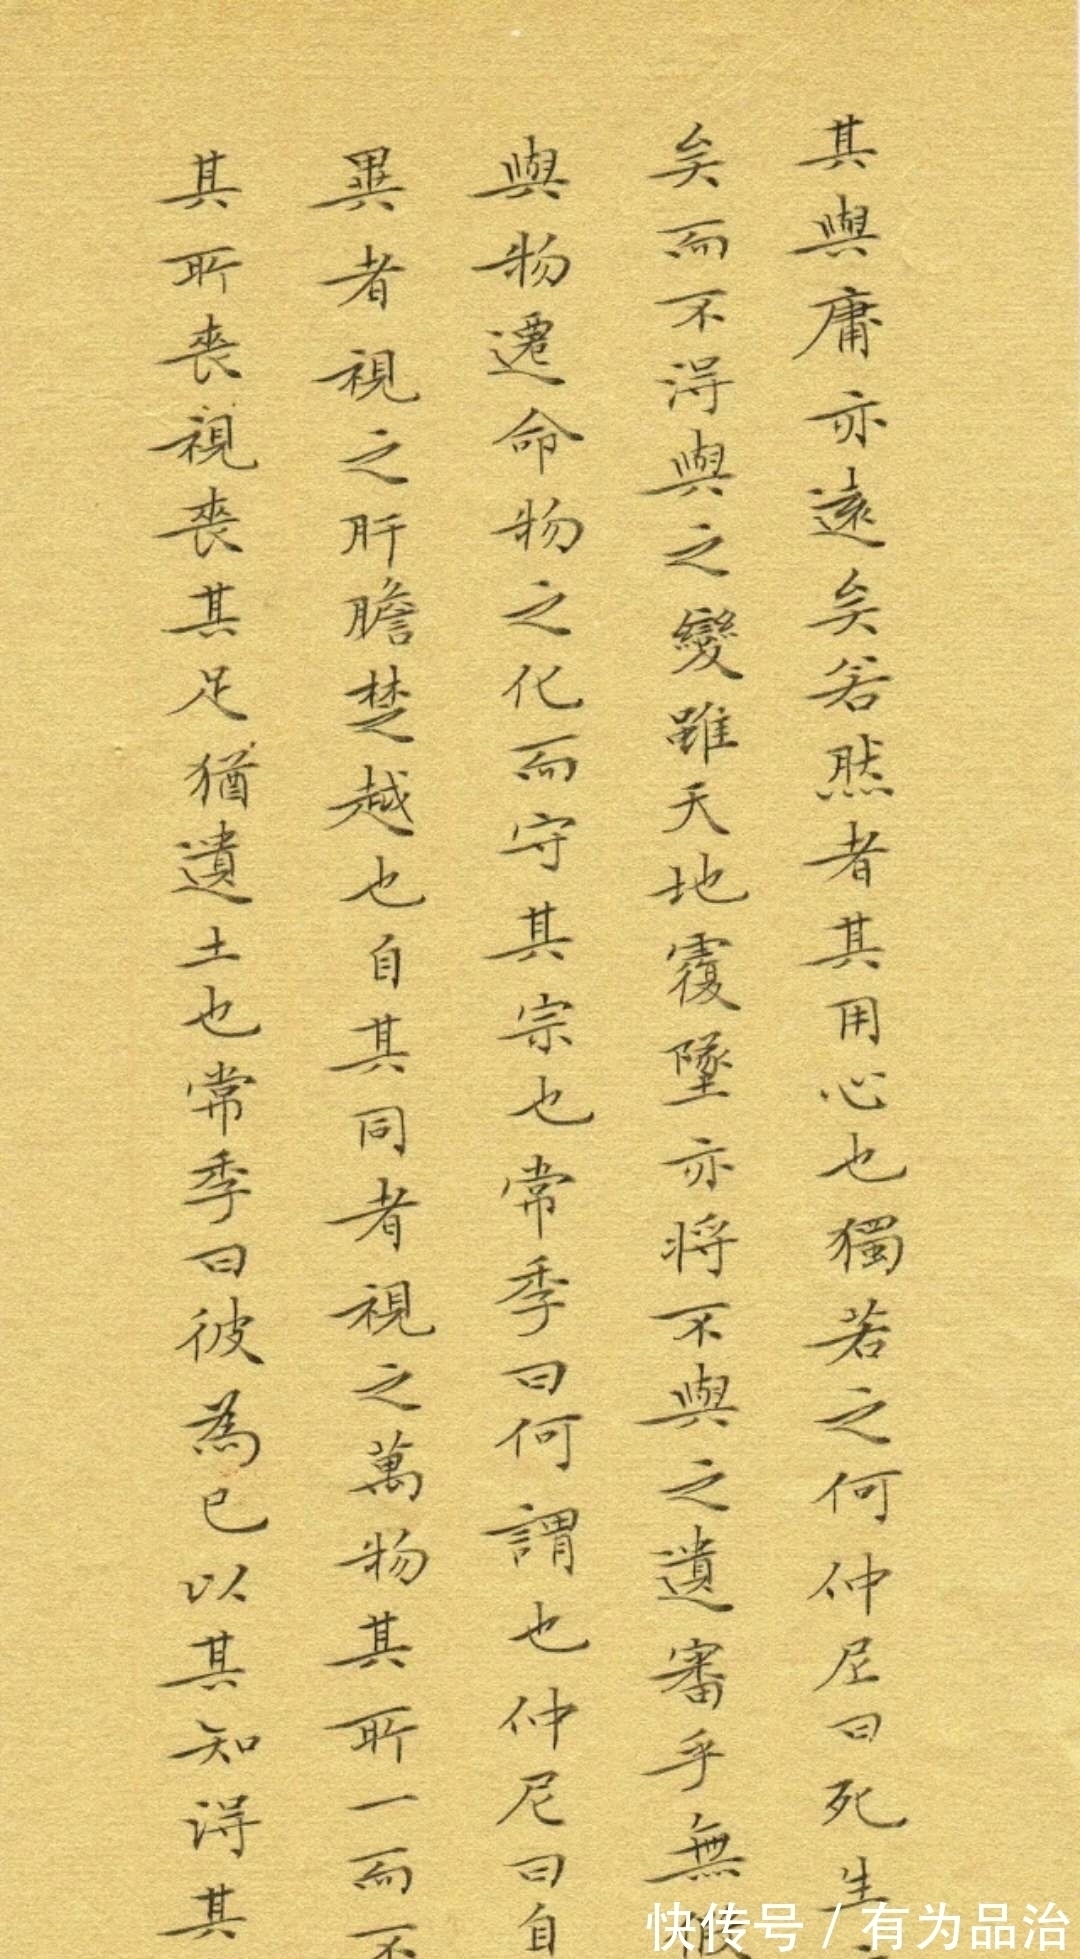 其與庸亦遠矣若然者其用心也獨若之何仲尼曰死生
矣而不得與之變雖天地覆墜亦將不與之遺審乎無
與物遷命物之化而守其宗也常季曰何謂也仲尼曰自
異者視之肝膽楚越也自其同者視之萬物其所一而不
其所喪視喪其足猶遺土也常季曰彼為己以其知得其
快传号 / 有为品治